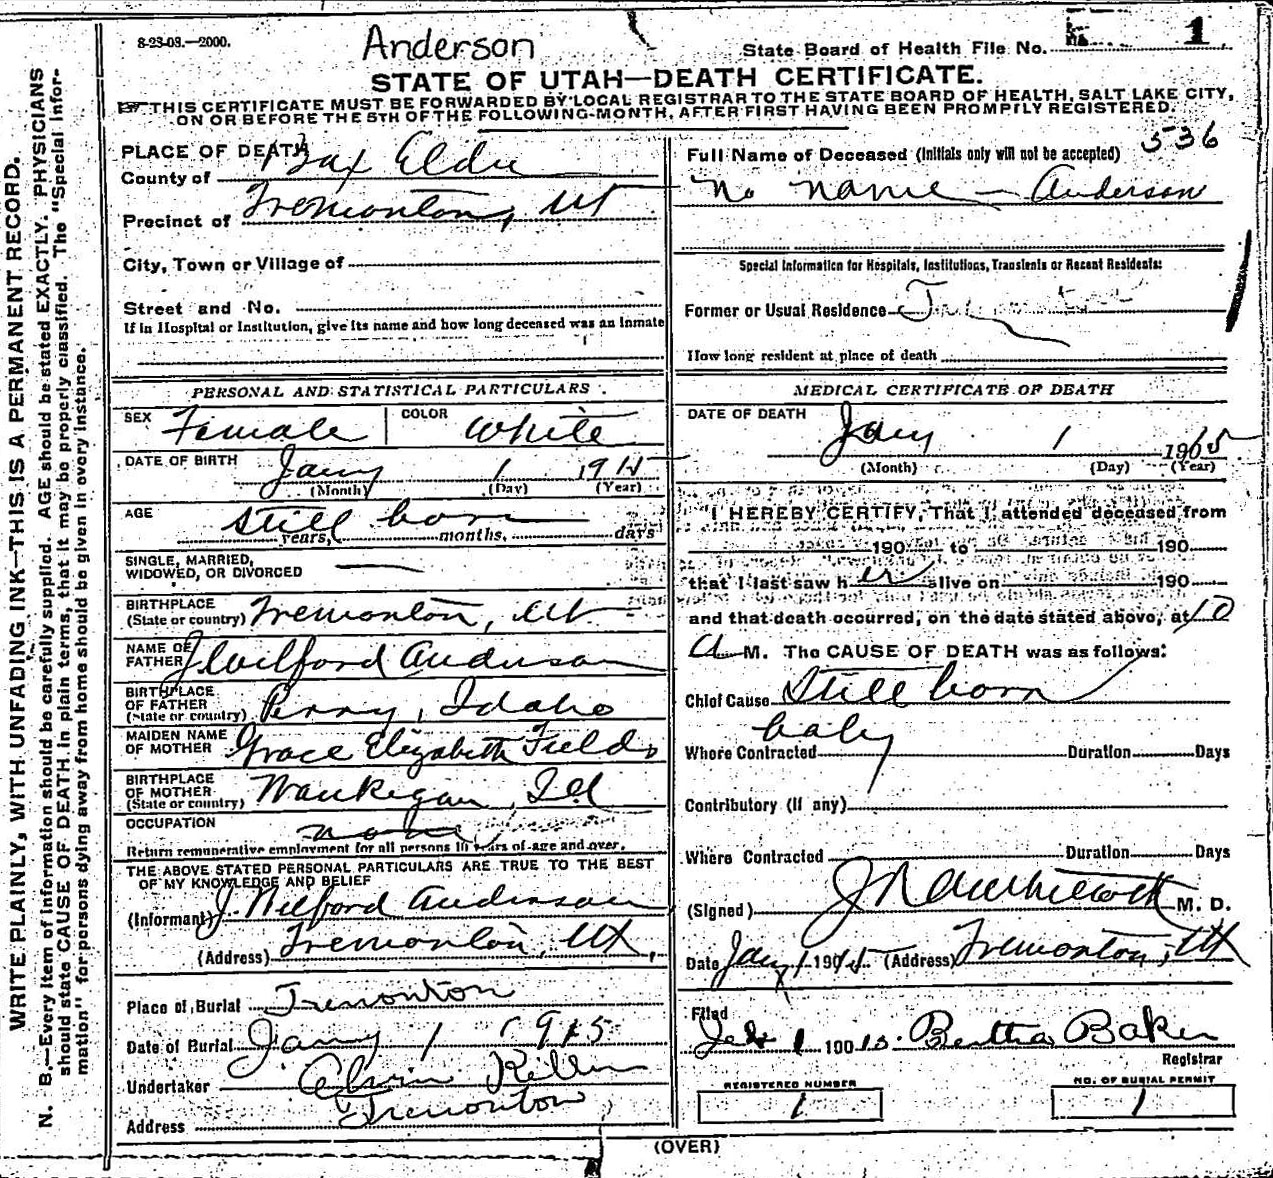 8-23-08.—2000.
Anderson
State Board of Health File No. 1
STATE OF UTAH—DEATH CERTIFICATE.
THIS CERTIFICATE MUST BE FORWARDED BY LOCAL REGISTRAR TO THE STATE BOARD OF HEALTH, SALT LAKE CITY,
ON OR BEFORE THE 5TH OF THE FOLLOWING MONTH, AFTER FIRST HAVING BEEN PROMPTLY REGISTERED.
WRITE PLAINLY, WITH UNFADING INK—THIS IS A PERMANENT RECORD.
N. B.—Every item of information should be carefully supplied. AGE should be stated EXACTLY. PHYSICIANS
should state CAUSE OF DEATH in plain terms, that it may be properly classified. The "Special Infor-
mation" for persons dying away from home should be given in every instance.
PLACE OF DEATH
County of Box Elder
Precinct of Tremonton, Ut
City, Town or Village of
Street and No.
If in Hospital or Institution, give its name and how long deceased was an Inmate
PERSONAL AND STATISTICAL PARTICULARS.
SEX Female COLOR White
DATE OF BIRTH Jany 1 191
(Month) (Day) (Year)
AGE Still born
years, months, days
SINGLE, MARRIED,
WIDOWED, OR DIVORCED —
BIRTHPLACE
(State or country) Tremonton, Ut.
NAME OF
FATHER J. Wilford Anderson
BIRTHPLACE
OF FATHER
(State or country) Perry, Idaho
MAIDEN NAME
OF MOTHER Grace Elizabeth Fields
BIRTHPLACE
OF MOTHER
(State or country) Waukegan, Ill
OCCUPATION none
Return remunerative employment for all persons 10 years of age and over.
THE ABOVE STATED PERSONAL PARTICULARS ARE TRUE TO THE BEST
OF MY KNOWLEDGE AND BELIEF
(Informant) J. Wilford Anderson
(Address) Tremonton, Ut.
Place of Burial Tremonton
Date of Burial Jany 1 1915
Undertaker Alvin
Address Tremonton
536
Full Name of Deceased (Initials only will not be accepted)
No name — Anderson
Special Information for Hospitals, Institutions, Transients or Recent Residents:
Former or Usual Residence
How long resident at place of death
MEDICAL CERTIFICATE OF DEATH
DATE OF DEATH
Jany 1 19
(Month) (Day) (Year)
I HEREBY CERTIFY, That I attended deceased from
190 to 190
that I last saw her alive on 190
and that death occurred, on the date stated above, at 10
A M. The CAUSE OF DEATH was as follows:
Chief Cause Still born
baby
Where Contracted Duration Days
Contributory (If any)
Where Contracted Duration Days
(Signed) M. D.
Date Jany 1 191 (Address) Tremonton, Ut
Filed
Feb 1 Bertha Baker
Registrar
REGISTERED NUMBER
1
NO. OF BURIAL PERMIT
1
(OVER)